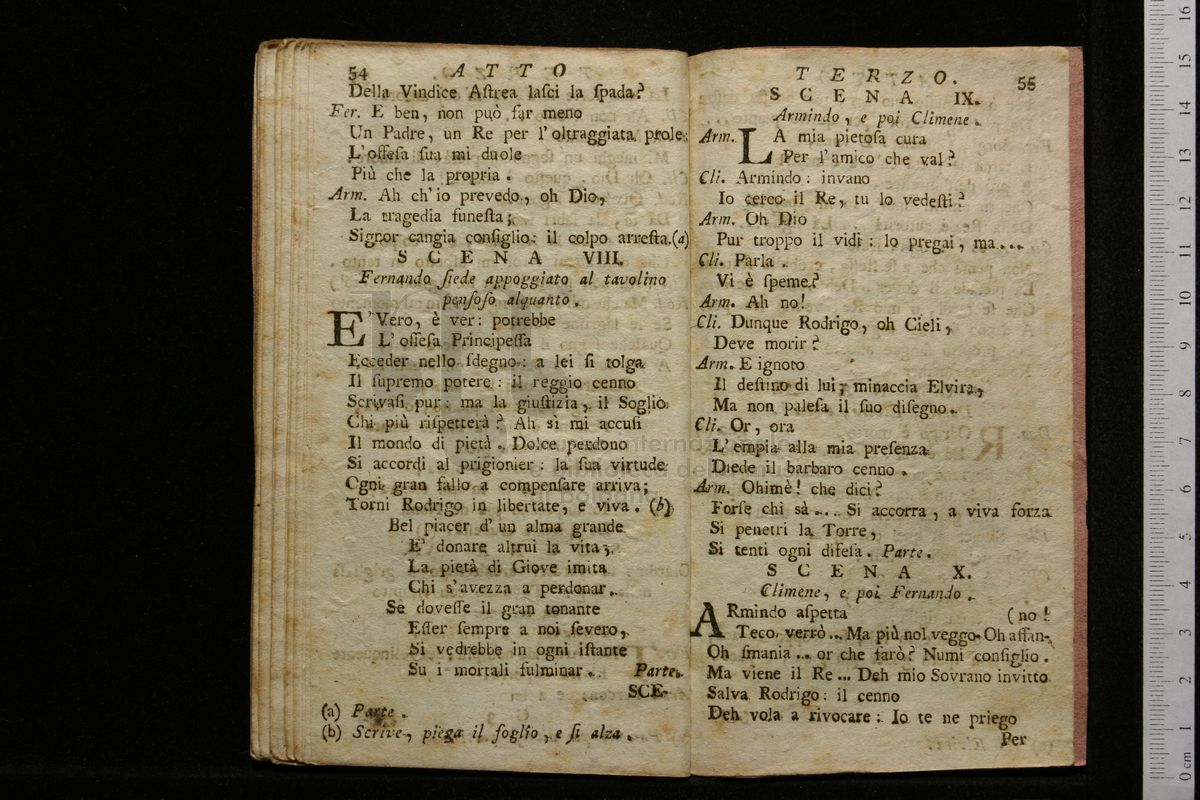 54 ATTO
Della Vindice Aſtrea laſci la ſpada?
Fer. E ben, non può far meno
Un Padre, un Re per l'oltraggiata prole;
L'offeſa ſua mi duole
Più che la propria.
Arm. Ah ch'io prevedo, oh Dio,
La tragedia funeſta;
Signor cangia conſiglio: il colpo arreſta.(a)
SCENA VIII.
Fernando ſiede appoggiato al tavolino
penſoſo alquanto.
E' Vero, è ver: potrebbe
L'offeſa Principeſſa
Ecceder nello ſdegno: a lei ſi tolga
Il ſupremo potere: il reggio cenno
Scrivaſi pur: ma la giuſtizia, il Soglio
Chi più riſpetterà? Ah sì mi accuſi
Il mondo di pietà. Dolce perdono
Si accordi al prigionier: la ſua virtude
Ogni gran fallo a compenſare arriva;
Torni Rodrigo in libertate, e viva. (b)
Bel piacer d'un alma grande
E' donare altrui la vita;
La pietà di Giove imita
Chi s'avezza a perdonar.
Se doveſſe il gran tonante
Eſſer ſempre a noi ſevero,
Si vedrebbe in ogni iſtante
Su i mortali fulminar. Parte.
SCE-
(a) Parte.
(b) Scrive, piega il foglio, e ſi alza.
TERZO. 55
SCENA IX.
Armindo, e poi Climene.
Arm. LA mia pietoſa cura
Per l'amico che val?
Cli. Armindo: invano
Io cerco il Re, tu lo vedeſti?
Arm. Oh Dio
Pur troppo il vidi: lo pregai, ma....
Cli. Parla.
Vi è ſpeme?
Arm. Ah no!
Cli. Dunque Rodrigo, oh Cieli,
Deve morir?
Arm. E ignoto
Il deſtino di lui; minaccia Elvira,
Ma non paleſa il ſuo diſegno.
Cli. Or, ora
L'empia alla mia preſenza
Diede il barbaro cenno.
Arm. Ohimè! che dici?
Forſe chi sà.... Si accorra, a viva forza
Si penetri la Torre,
Si tenti ogni difeſa. Parte.
SCENA X.
Climene, e poi Fernando.
ARmindo aſpetta (no!
Teco verrò... Ma più nol veggo. Oh affan-
Oh ſmania... or che farò? Numi conſiglio.
Ma viene il Re... Deh mio Sovrano invitto
Salva Rodrigo: il cenno
Deh vola a rivocare: Io te ne priego
Per